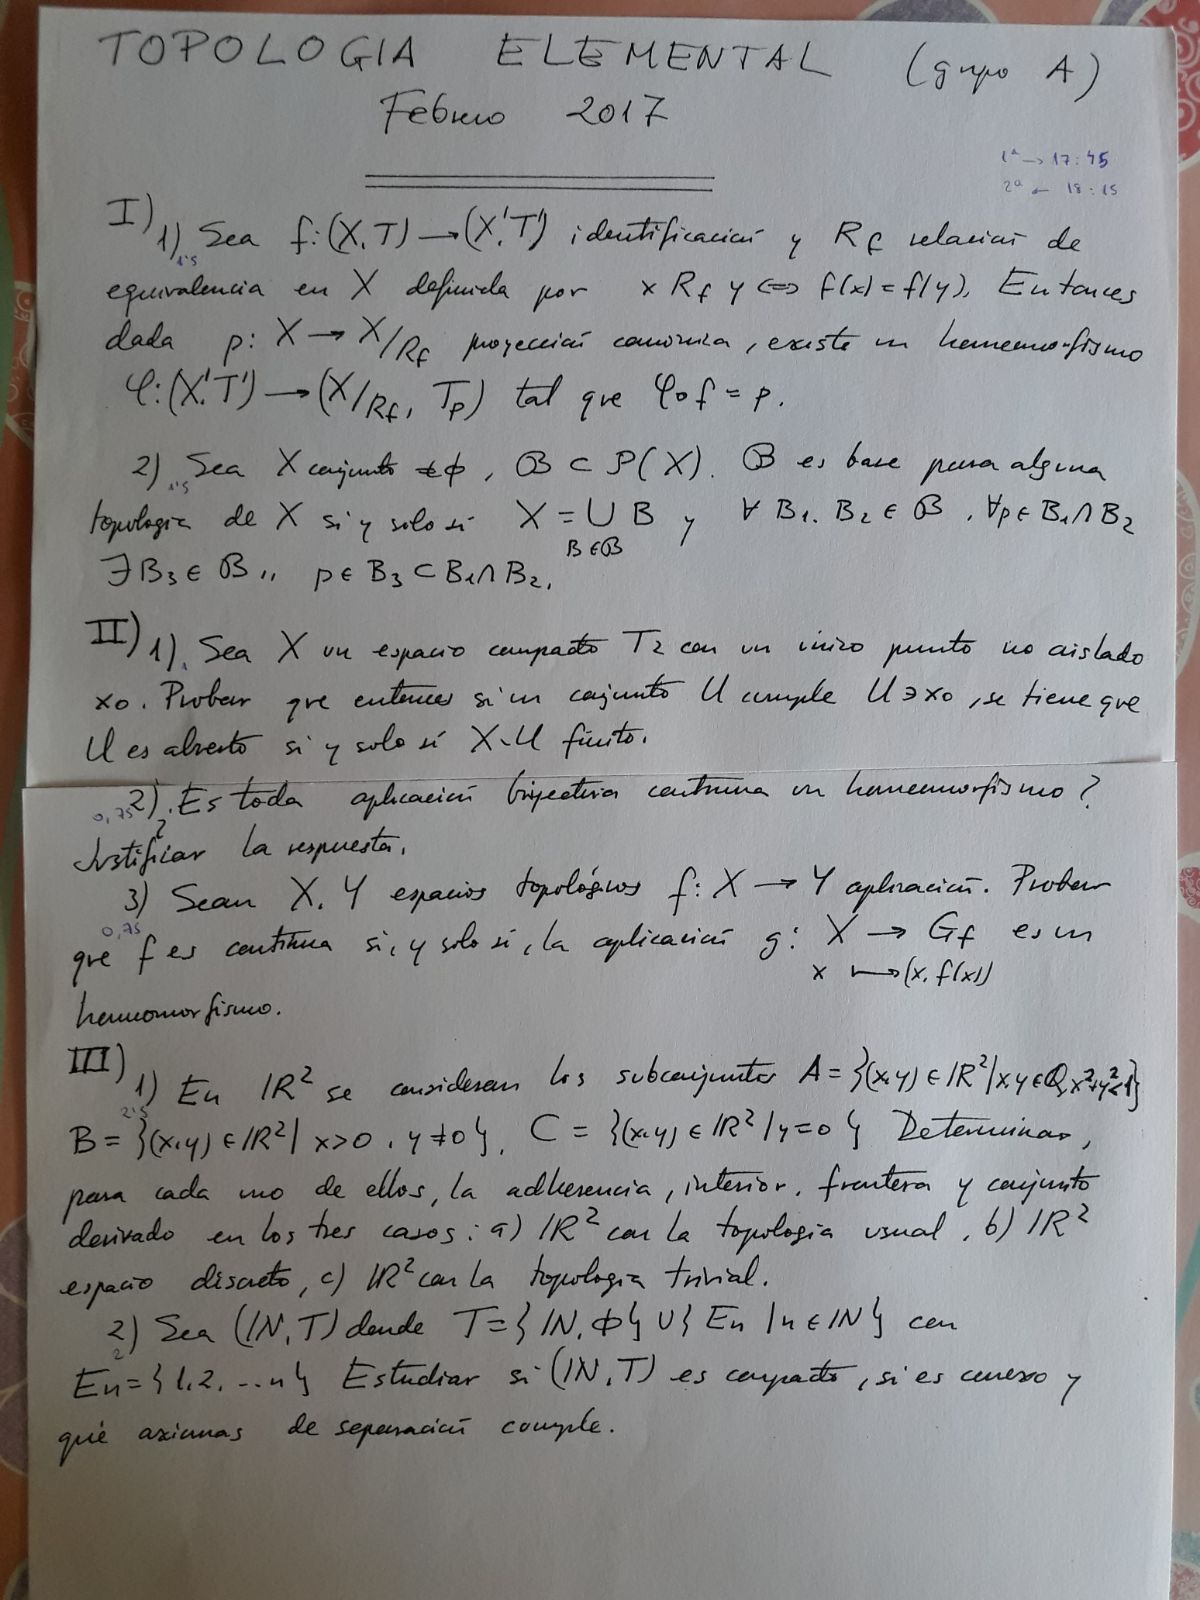 TOPOLOGIA ELEMENTAL (grupo A)
Febrero 2017
1ª → 17:45
2ª ← 18:15
I) 1) Sea f:(X,T)→(X',T') identificación y Rf relación de
1'5
equivalencia en X definida por x Rf y ⇔ f(x)=f(y). Entonces
dada p: X → X/Rf proyección canónica, existe un homeomorfismo
φ:(X',T') → (X/Rf, Tp) tal que φ∘f = p.
2) Sea X conjunto ≠ϕ, B ⊂ P(X). B es base para alguna
1'5
topología de X si y solo si X = ∪ B y ∀ B1, B2 ∈ B, ∀p∈B1∩B2
B∈B
∃B3 ∈ B,, p∈ B3 ⊂ B1∩B2.
II) 1). Sea X un espacio compacto T2 con un único punto no aislado
1
x0. Probar que entonces si un conjunto U cumple U∋x0, se tiene que
U es abierto si y solo si X-U finito.
2) ¿Es toda aplicación biyectiva continua un homeomorfismo?
0,75
Justificar la respuesta.
3) Sean X, Y espacios topológicos f: X → Y aplicación. Probar
0,75
que f es continua si, y solo si, la aplicación g: X → Gf es un
x ↦ (x, f(x))
homeomorfismo.
III) 1) En IR² se consideran los subconjuntos A = {(x,y) ∈ IR² | x y ∈ Q, x²+y²<1}
2'5
B = {(x,y) ∈ IR² | x>0, y≠0}, C = {(x,y) ∈ IR² | y=0} Determinar,
para cada uno de ellos, la adherencia, interior, frontera y conjunto
derivado en los tres casos: a) IR² con la topología usual, b) IR²
espacio discreto, c) IR² con la topología trivial.
2) Sea (IN, T) donde T = {IN, ϕ} ∪ {En | n ∈ IN} con
2
En = {1, 2, ... n} Estudiar si (IN, T) es compacto, si es conexo y
qué axiomas de separación cumple.